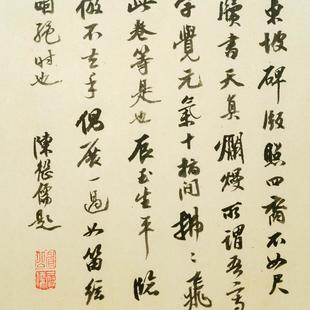 東坡碑版照四裔不如尺
牘書天真爛熳所謂吾寫
字覺元氣十指間拂〻飛
此卷等是也辰玉生平臨
倣不去手偶展一過如笛絃
咽絕時也
陳繼儒題